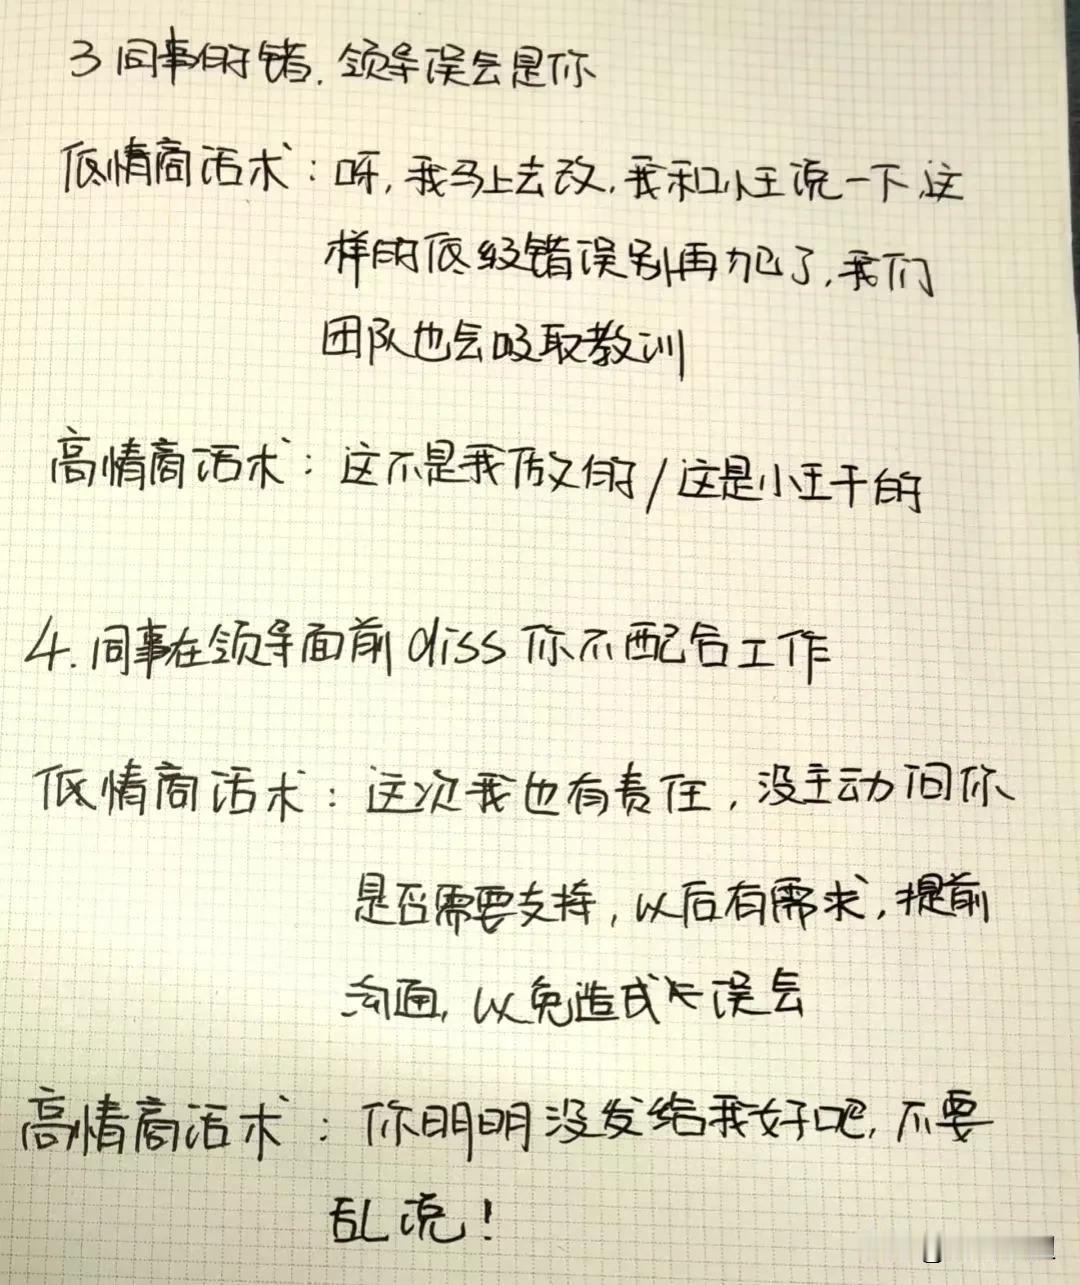 3 同事的错. 领导误会是你
低情商话术：呀, 我马上去改, 我和小王说一下, 这
样的低级错误别再犯了, 我们
团队也会吸取教训
高情商话术：这不是我做的 / 这是小王干的
4. 同事在领导面前 diss 你不配合工作
低情商话术：这次我也有责任, 没主动问你
是否需要支持, 以后有需求, 提前
沟通, 以免造成误会
高情商话术：你明明没发给我好吧, 不要
乱说！